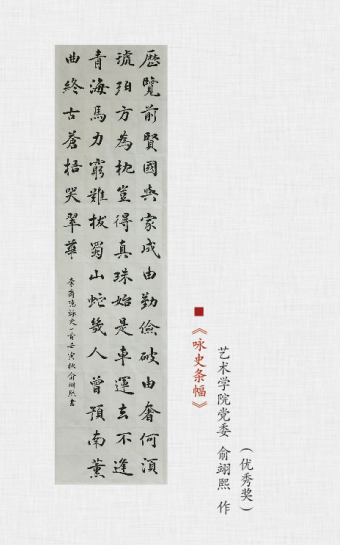 歷覽前賢國與家成由勤儉破由奢何須
琥珀方為枕豈得真珠始是車運去不逢
青海馬力窮難拔蜀山蛇幾人曾預南薰
曲終古蒼梧哭翠華
李商隱詠史一首壬寅秋俞翊熙書
(优秀奖)
艺术学院党委 俞翊熙 作
《咏史条幅》